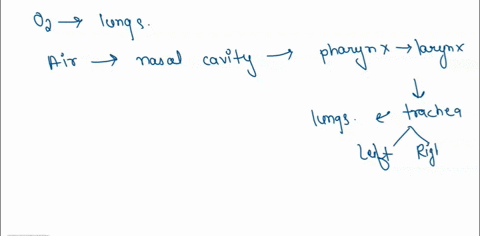 O₂ → lungs.
Air → nasal cavity → pharynx → larynx
↓
lungs. ← trachea
Left Rigl